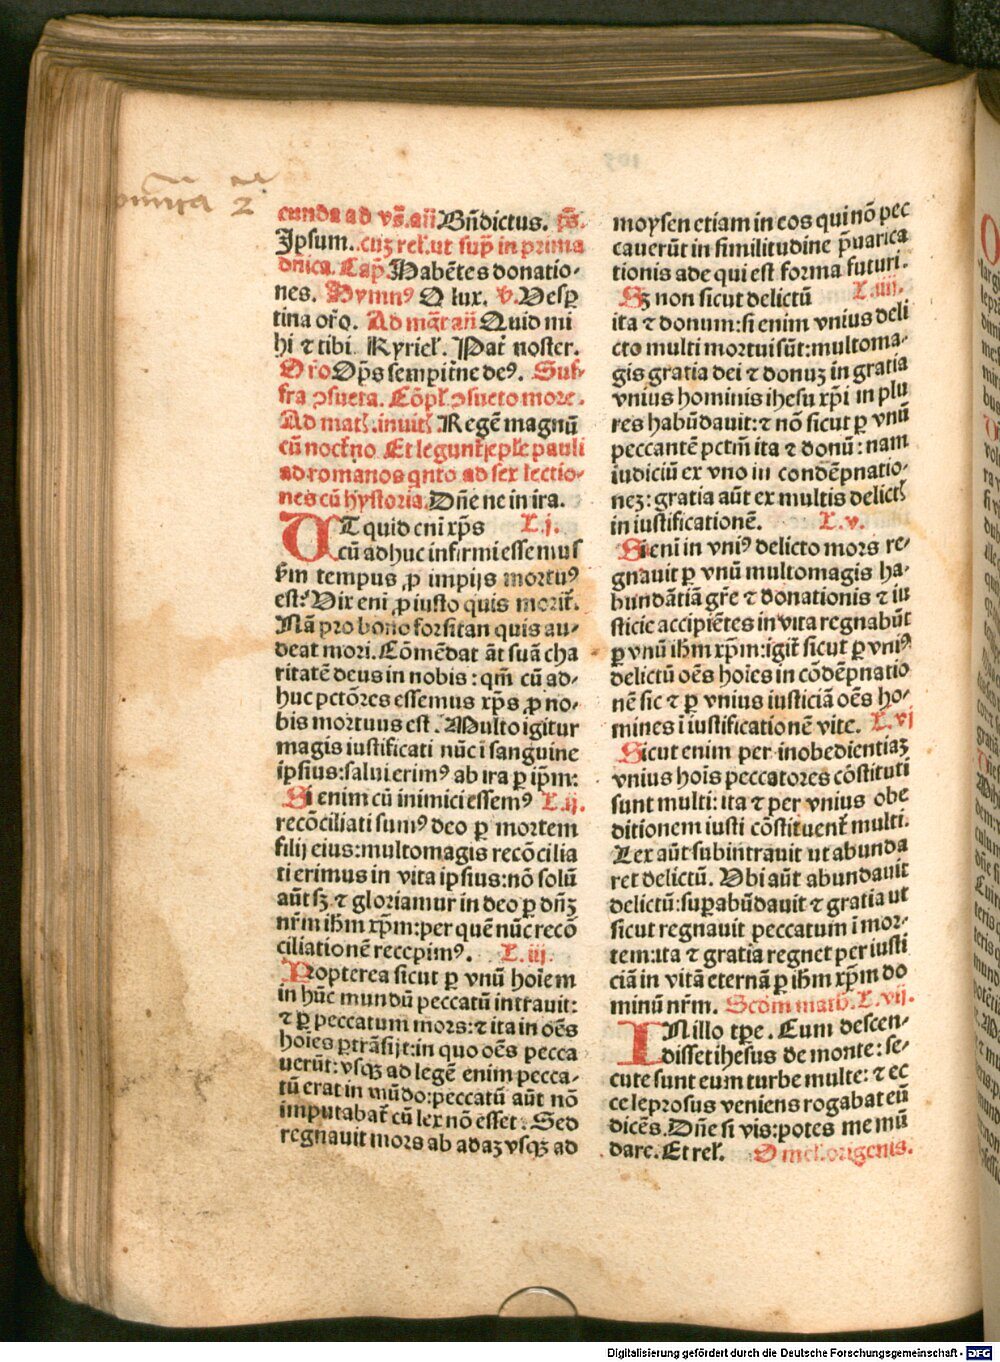 om̄ica 2ᵃ
cunda ad vs̄. añ Bn̄dictus. ps̄.
Ipsum. cuȝ rel'. ut sup̄ in prima
dnica. Cap̄ Habētes donatio-
nes. Hymnꝰ O lux. v. Vesp
tina or̄o. Ad mag̅t añ Quid mi
hi ⁊ tibi. Kyriel'. Pat̄ noster.
Or̄o Op̄s sempit̄ne deꝰ. Suf-
fra ꝯsueta. Cōpl' ꝯsueto more.
Ad mat. invit Regē magnū
cū noct̄no. Et legunt̄ eple pauli
ad romanos qnto ad sex lectio-
nes cū hystoria. Dn̄e ne in ira.
UT quid eni xp̄s L.j.
cū adhuc infirmi essemus
ẜm tempus ꝓ impijs mortuꝰ
est? Vix eni ꝓ iusto quis morit̄.
Nā pro bono forsitan quis au-
deat mori. Cōmēdat āt suā cha
ritatē deus in nobis: qm̄ cū ad-
huc pctōres essemus xp̄s ꝓ no-
bis mortuus est. Multo igitur
magis iustificati nūc ī sanguine
ip̄sius: salui erimꝰ ab ira ꝑ ip̄m:
Si enim cū inimici essemꝰ L.ij.
recōciliati sumꝰ deo ꝑ mortem
filij eius: multomagis recōcilia
ti erimus in vita ipsius: nō solū
aūt sȝ ⁊ gloriamur in deo ꝑ dn̄ȝ
nr̄m ih̄m xp̄m: per quē nūc recō
ciliationē recepimꝰ. L.iij.
Propterea sicut ꝑ vnū hoīem
in hūc mundū peccatū intrauit:
⁊ ꝑ peccatum mors: ⁊ ita in oēs
hoīes ꝑtrāsijt: in quo oēs pecca
uerūt: vsqȝ ad legē enim pecca-
tū erat in mūdo: peccatū aūt nō
imputabat̄ cū lex nō esset. Sed
regnauit mors ab adaȝ vsqȝ ad
moysen etiam in eos qui nō pec
cauerūt in similitudine p̄uarica
tionis ade qui est forma futuri.
Sȝ non sicut delictū L.iiij.
ita ⁊ donum: si enim vnius deli
cto multi mortui sūt: multoma-
gis gratia dei ⁊ donuȝ in gratia
vnius hominis ihesu xp̄i in plu
res habūdauit: ⁊ nō sicut ꝑ vnū
peccantē pctm̄ ita ⁊ donū: nam
iudiciū ex vno in condēpnatio-
neȝ: gratia aūt ex multis delict
in iustificationē. L.v.
Si eni in vniꝰ delicto mors re-
gnauit ꝑ vnū multomagis ha-
bundātiā gr̄e ⁊ donationis ⁊ iu
sticie accipiētes in vita regnabūt
ꝑ vnū ih̄m xp̄m: igit̄ sicut ꝑ vniꝰ
delictū oēs hoīes in cōdēpnatio
nē sic ⁊ ꝑ vnius iusticiā oēs ho-
mines ī iustificationē vite. L.vj
Sicut enim per inobedientiaȝ
vnius hoīs peccatores cōstituti
sunt multi: ita ⁊ per vnius obe
ditionem iusti cōstituent̄ multi.
Lex aūt subintrauit ut abunda
ret delictū. Vbi aūt abundauit
delictū: suꝑabūdauit ⁊ gratia ut
sicut regnauit peccatum ī mor-
tem: ita ⁊ gratia regnet per iusti
ciā in vitā eternā ꝑ ih̄m xp̄m do
minū nr̄m. Scdm math. L.vij.
IN illo tp̄e. Cum descen-
disset ihesus de monte: se-
cute sunt eum turbe multe: ⁊ ec
ce leprosus veniens rogabat eū
dicēs. Dn̄e si vis: potes me mū
dare. Et rel'. Omel'. origenis.
Digitalisierung gefördert durch die Deutsche Forschungsgemeinschaft - DFG